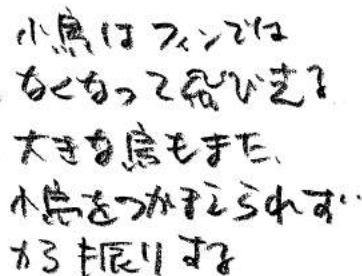 小鳥はフィンでは
なくなって飛び去る
大きな鳥もまた、
小鳥をつかまえられず
から振りする